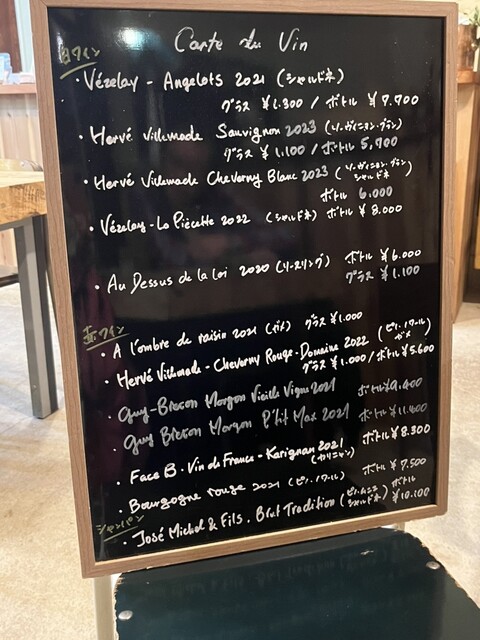 Carte du Vin
白ワイン
・Vézelay - Angelots 2021 (シャルドネ)
グラス ¥1.300 / ボトル ¥7.700
・Hervé Villemade Sauvignon 2023 (ソーヴィニヨン・ブラン)
グラス ¥1.100 / ボトル 5,700
・Hervé Villemade Cheverny Blanc 2023 (ソーヴィニヨン・ブラン
シャルドネ)
ボトル 6.000
・Vézelay - La Piécette 2022 (シャルドネ) ボトル ¥8.000
・Au Dessus de la Loi 2020 (リースリング) ボトル ¥6.000
グラス ¥1.100
赤ワイン
・A l'ombre de raisin 2021 (ガメ) グラス ¥1.000
・Hervé Villemade - Cheverny Rouge - Domaine 2022 (ピノ・ノワール
ガメ)
グラス ¥1.000 / ボトル ¥5.600
・Guy-Breton Morgon Vieille Vigne 2021 ボトル ¥9.400
・Guy Breton Morgon P'tit Max 2021 ボトル ¥11.400
・Face B. Vin de France - Karignan 2021 ボトル ¥8.300
(カリニャン)
・Bourgogne rouge 2021 (ピノ・ノワール) ボトル ¥7.500
シャンパン
・José Michel & Fils. Brut Tradition (ピノ・ムニエ
シャルドネ) ボトル
¥10.100